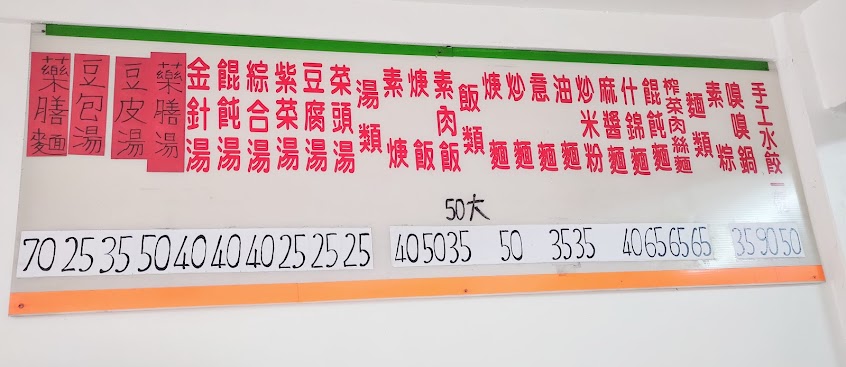 手工水餃
嗅嗅鍋
素粽
麵類
榨菜肉絲麵
餛飩麵
什錦麵
麻醬麵
炒米粉
油麵
意麵
炒麵
焿麵
飯類
素肉飯
焿飯
素焿
湯類
菜頭湯
豆腐湯
紫菜湯
綜合湯
餛飩湯
金針湯
藥膳湯
豆皮湯
豆包湯
藥膳麵
50大
70 25 35 50 40 40 40 25 25 25 40 50 35 50 35 35 40 65 65 65 35 90 50